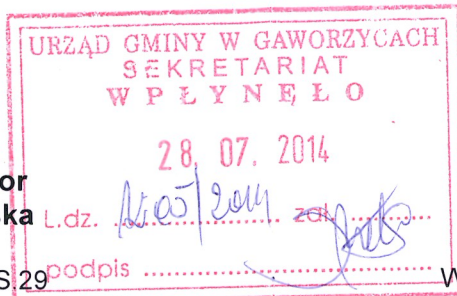 URZĄD GMINY W GAWORZYCACH
SEKRETARIAT
WPŁYNĘŁO
28. 07. 2014
or
ska L.dz. /2014 zał.
S.29 podpis W